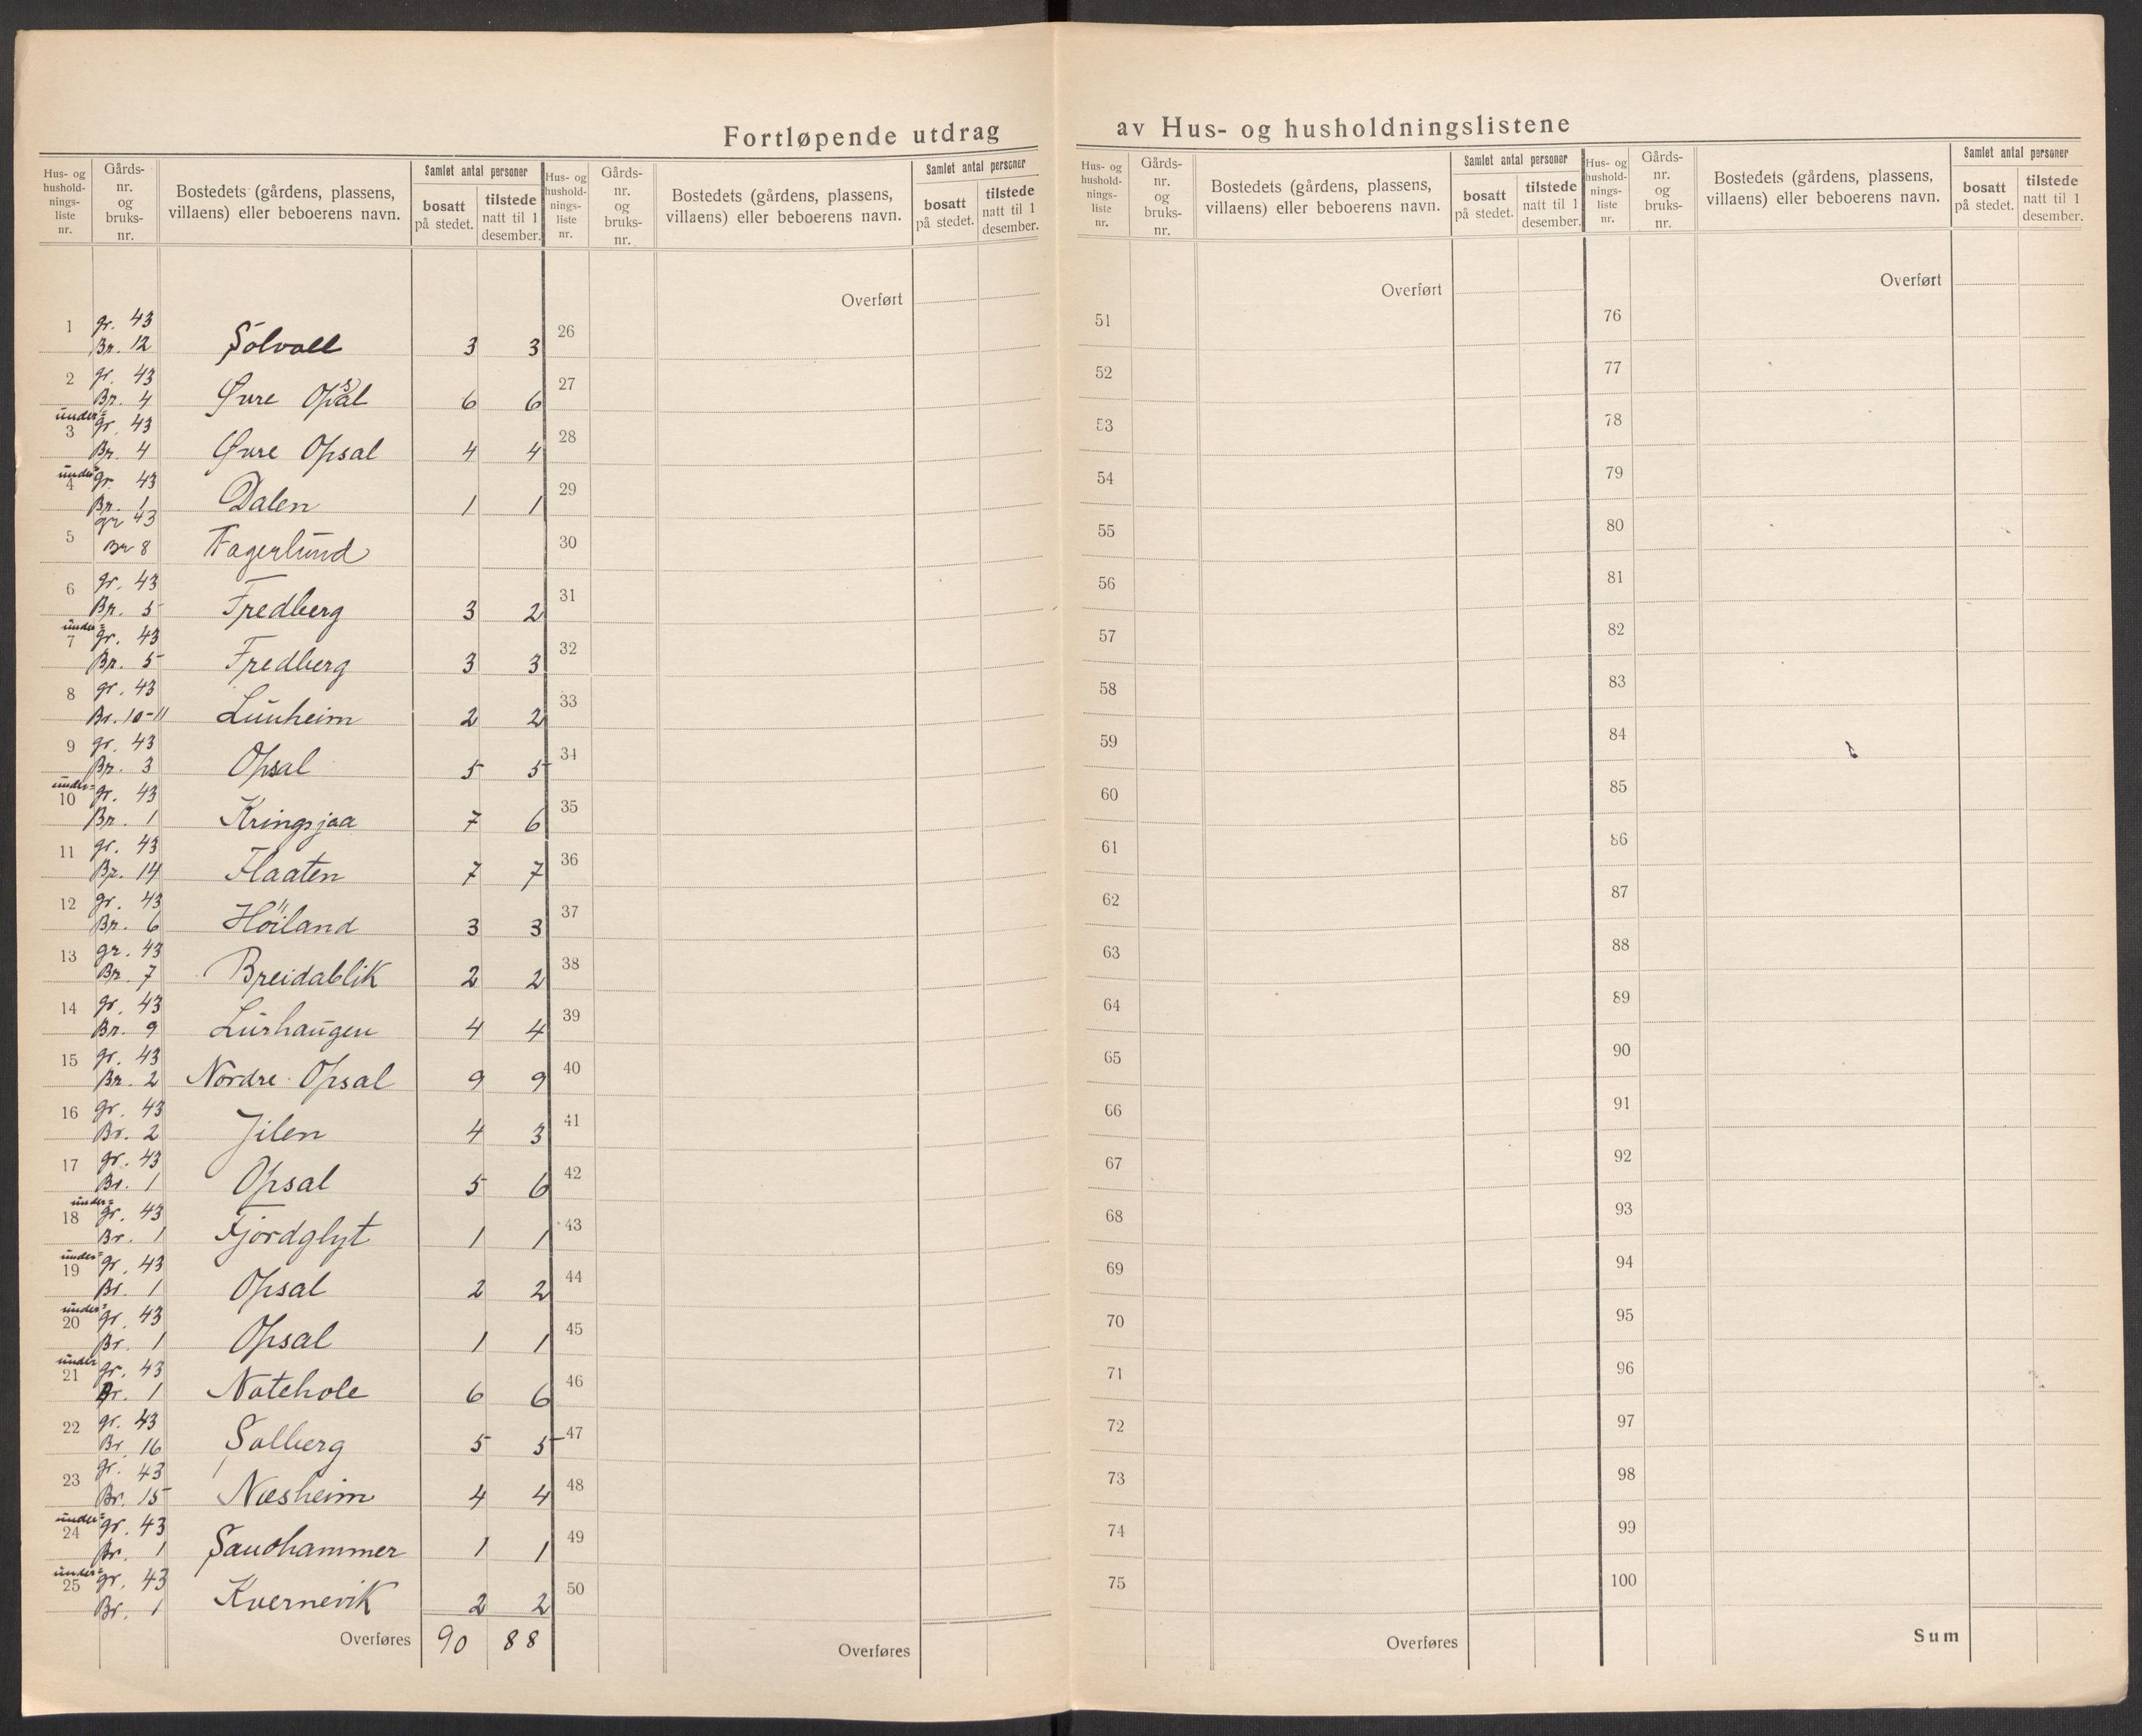 Fortløpende utdrag av Hus- og husholdningslistene
Hus- og hushold-nings-liste nr. | Gårds-nr. og bruks-nr. | Bostedets (gårdens, plassens, villaens) eller beboerens navn. | Samlet antal personer | bosatt på stedet. | tilstede natt til 1 desember.
1 | gr. 43 Br. 12 | Solvoll | 3 | 3
2 | gr. 43 Br. 4 | Øvre Opsal | 6 | 6
3 | under= gr. 43 Br. 4 | Øvre Opsal | 4 | 4
4 | under= gr. 43 Br. 1 | Dalen | 1 | 1
5 | gr 43 Br 8 | Fagerlund
6 | gr. 43 Br. 5 | Fredberg | 3 | 2
7 | under= gr. 43 Br. 5 | Fredberg | 3 | 3
8 | gr. 43 Br. 10-11 | Lunheim | 2 | 2
9 | gr. 43 Br. 3 | Opsal | 5 | 5
10 | under= gr. 43 Br. 1 | Kringsjaa | 7 | 6
11 | gr. 43 Br. 14 | Flaaten | 7 | 7
12 | gr. 43 Br. 6 | Höiland | 3 | 3
13 | gr. 43 Br. 7 | Breidablik | 2 | 2
14 | gr. 43 Br. 9 | Lurhaugen | 4 | 4
15 | gr. 43 Br. 2 | Nordre Opsal | 9 | 9
16 | gr. 43 Br. 2 | Jilen | 4 | 3
17 | gr. 43 Br. 1 | Opsal | 5 | 6
18 | under= gr. 43 Br. 1 | Fjordglyt | 1 | 1
19 | under= gr. 43 Br. 1 | Opsal | 2 | 2
20 | under= gr. 43 Br. 1 | Opsal | 1 | 1
21 | under gr. 43 Br. 1 | Notehole | 6 | 6
22 | gr. 43 Br. 16 | Solberg | 5 | 5
23 | gr. 43 Br. 15 | Næsheim | 4 | 4
24 | under= gr. 43 Br. 1 | Sandhammer | 1 | 1
25 | under= gr. 43 Br. 1 | Kvernevik | 2 | 2
Overføres | 90 | 88
Hus- og hushold-nings-liste nr. | Gårds-nr. og bruks-nr. | Bostedets (gårdens, plassens, villaens) eller beboerens navn. | Samlet antal personer | bosatt på stedet. | tilstede natt til 1 desember.
Overført
26
27
28
29
30
31
32
33
34
35
36
37
38
39
40
41
42
43
44
45
46
47
48
49
50
Overføres
Hus- og hushold-nings-liste nr. | Gårds-nr. og bruks-nr. | Bostedets (gårdens, plassens, villaens) eller beboerens navn. | Samlet antal personer | bosatt på stedet. | tilstede natt til 1 desember.
Overført
51
52
53
54
55
56
57
58
59
60
61
62
63
64
65
66
67
68
69
70
71
72
73
74
75
Overføres
Hus- og hushold-nings-liste nr. | Gårds-nr. og bruks-nr. | Bostedets (gårdens, plassens, villaens) eller beboerens navn. | Samlet antal personer | bosatt på stedet. | tilstede natt til 1 desember.
Overført
76
77
78
79
80
81
82
83
84
85
86
87
88
89
90
91
92
93
94
95
96
97
98
99
100
Sum